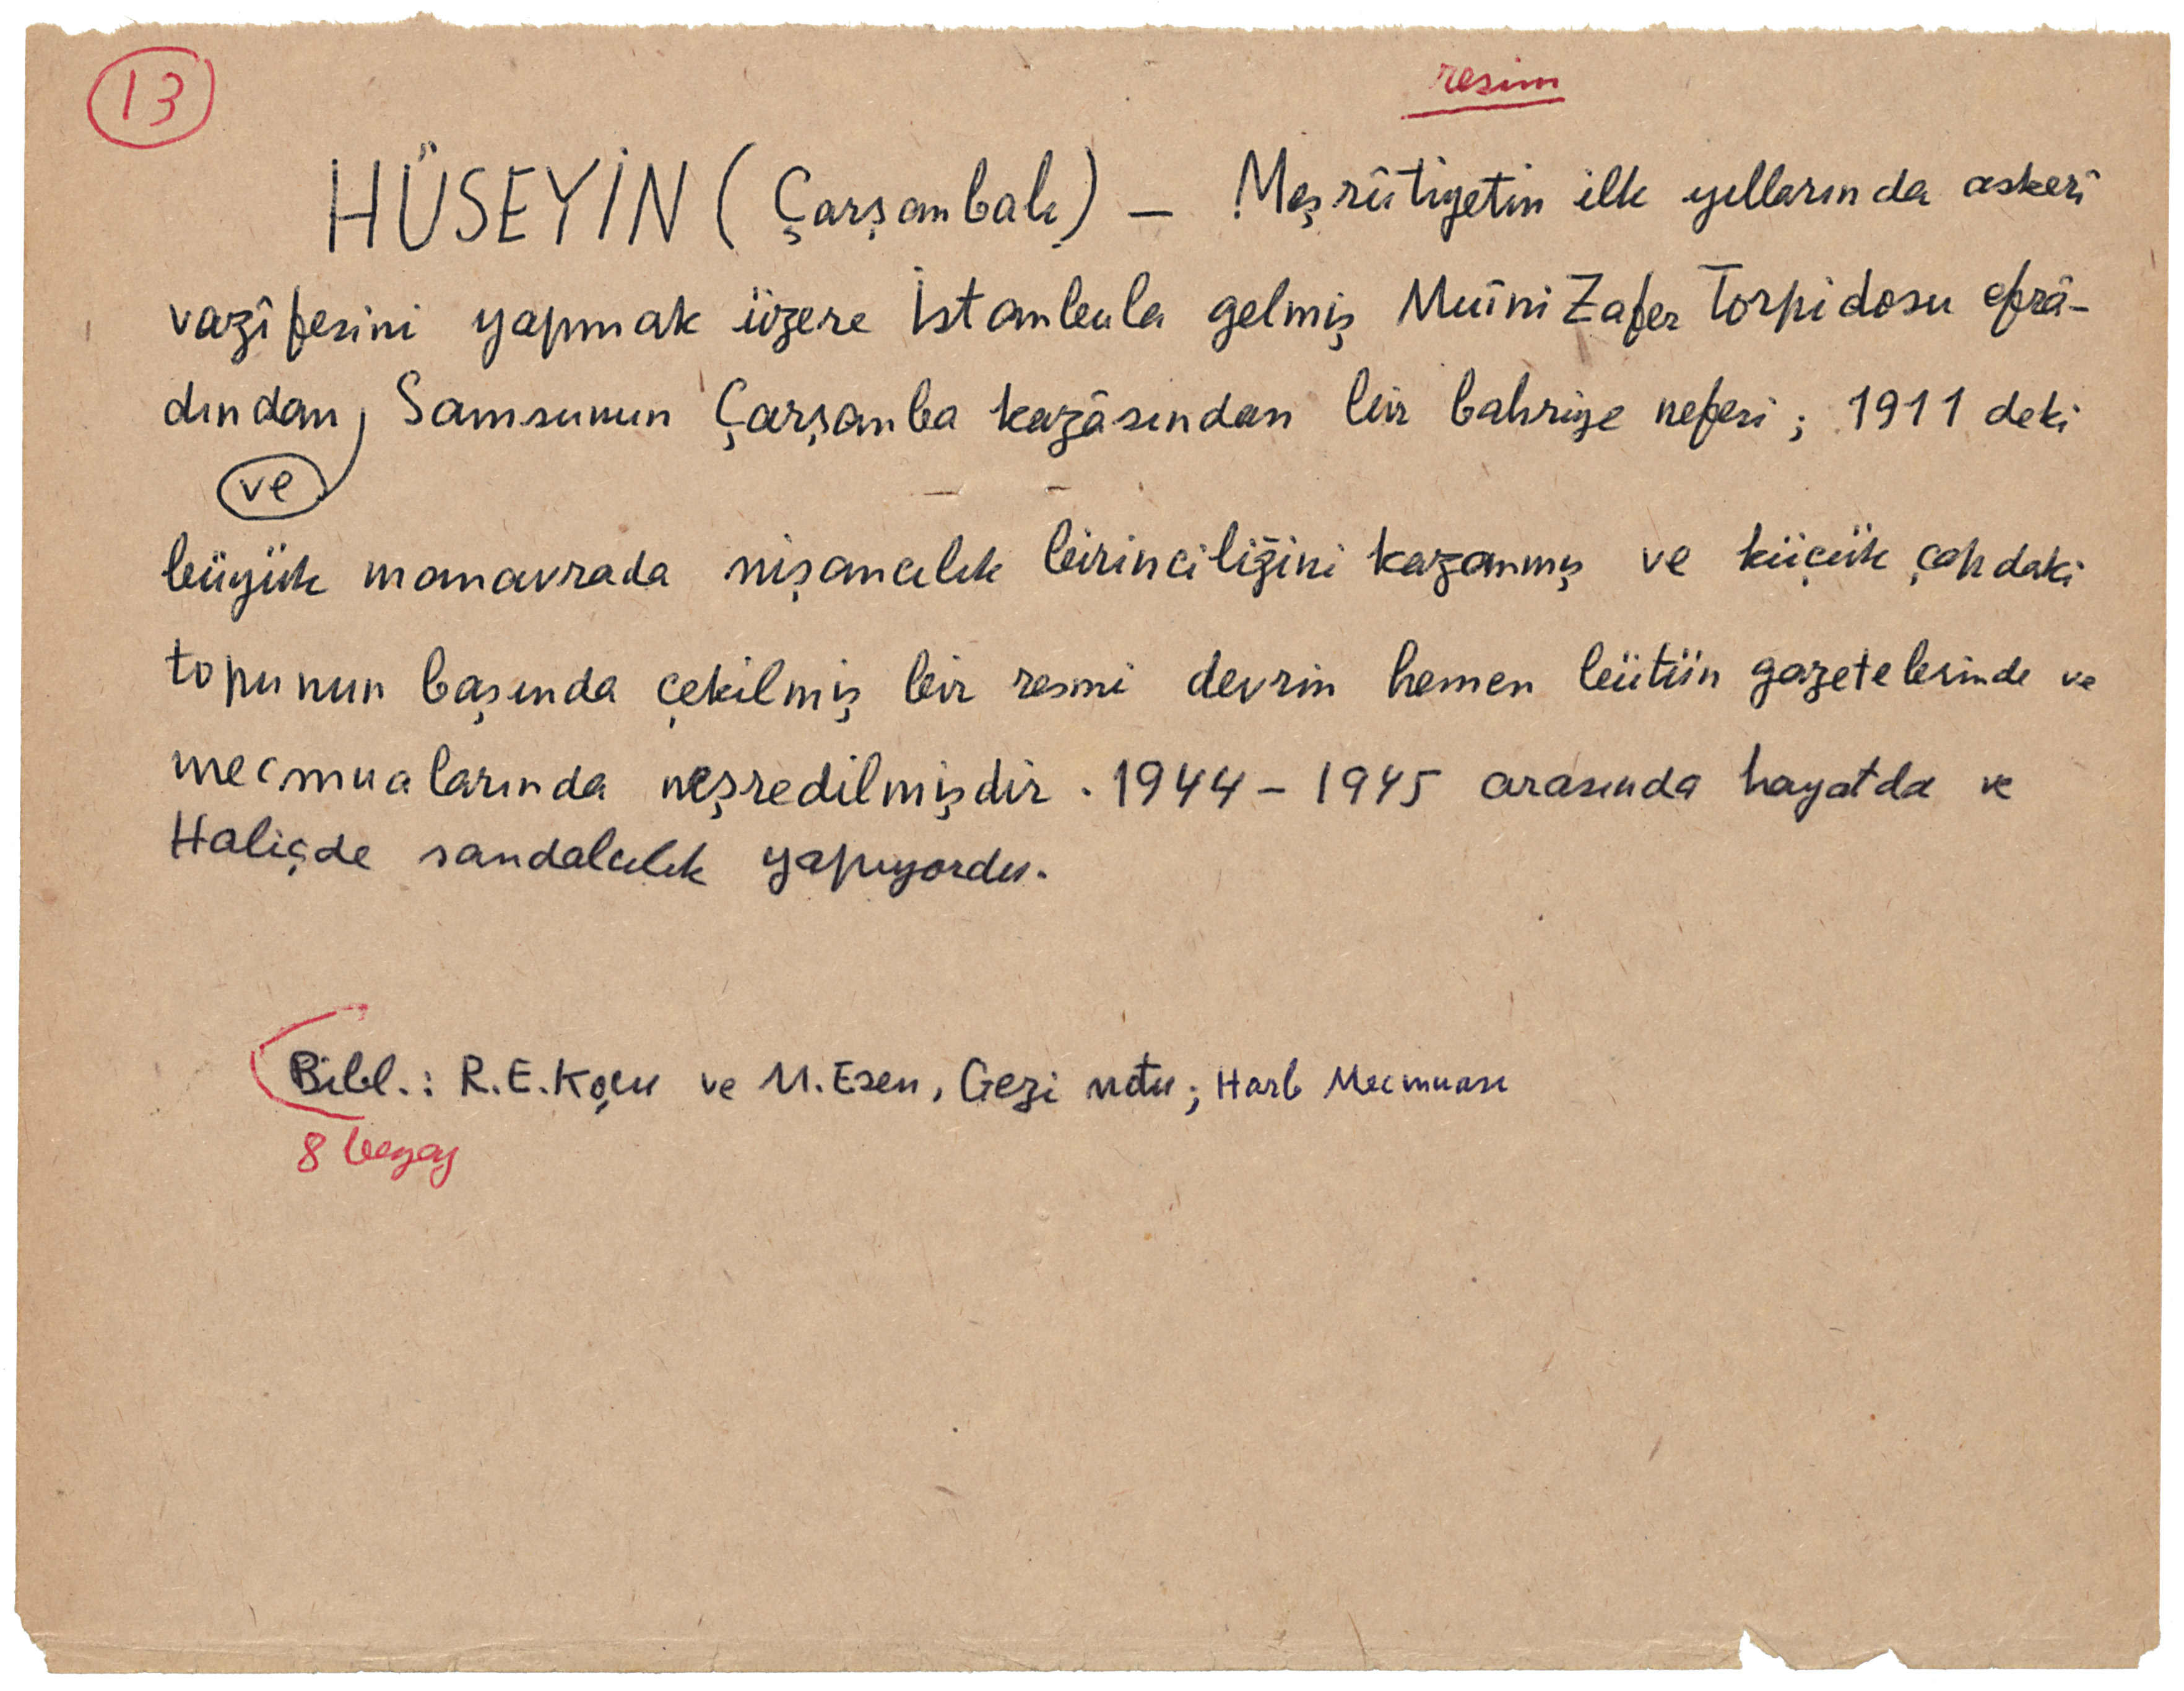 13
resim
HÜSEYİN (Çarşambalı) — Meşrûtiyetin ilk yıllarında askerî
vazîfesini yapmak üzere İstanbula gelmiş Muîni Zafer Torpidosu efrâ-
dından, Samsunun Çarşanba kazâsından bir bahriye neferi; 1911 deki
ve
büyük manavrada nişancılık birinciliğini kazanmış ve küçük çapdaki
topunun başında çekilmiş bir resmi devrin hemen bütün gazetelerinde ve
mecmualarında neşredilmişdir. 1944 – 1945 arasında hayatda ve
Haliçde sandalcılık yapıyordu.
Bibl.: R.E.Koçu ve M.Esen, Gezi notu; Harb Mecmuası
8 beyaz